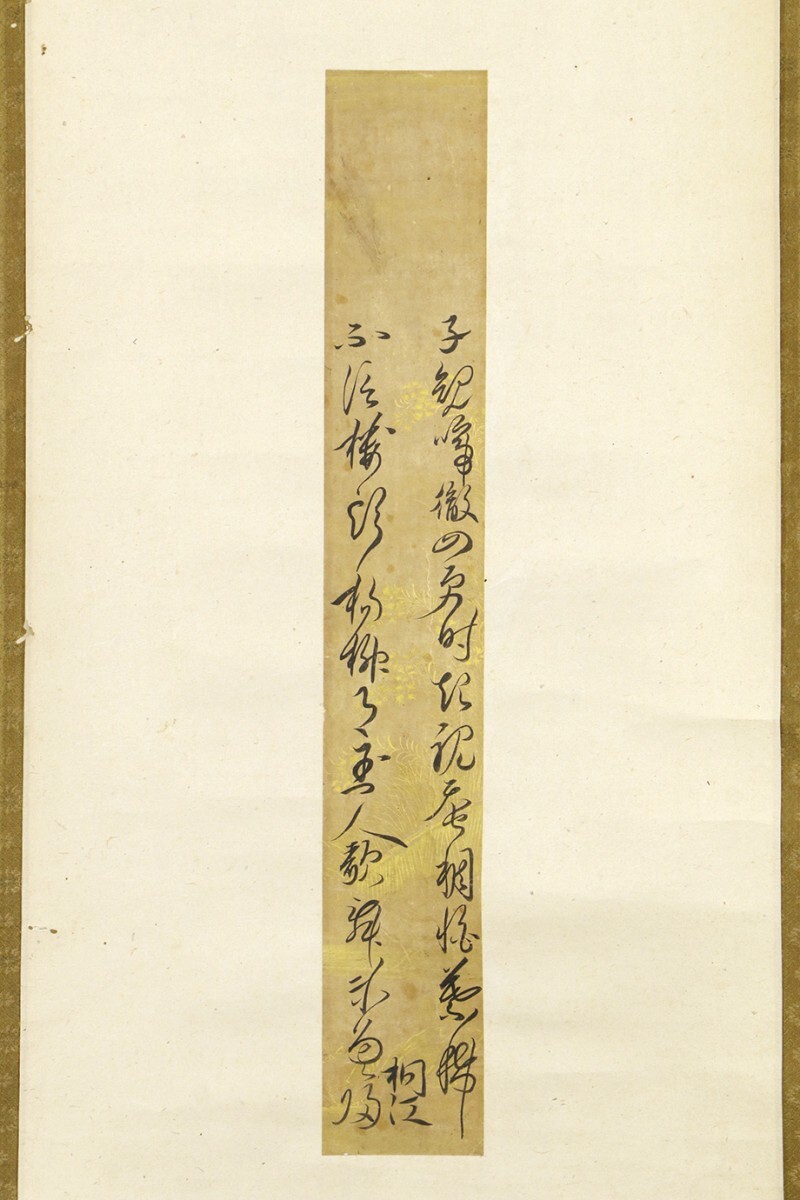 子規啼徹四更时起視蚕稠怕葉稀
不信楼頭楊柳月玉人歌舞未曾帰
桐江